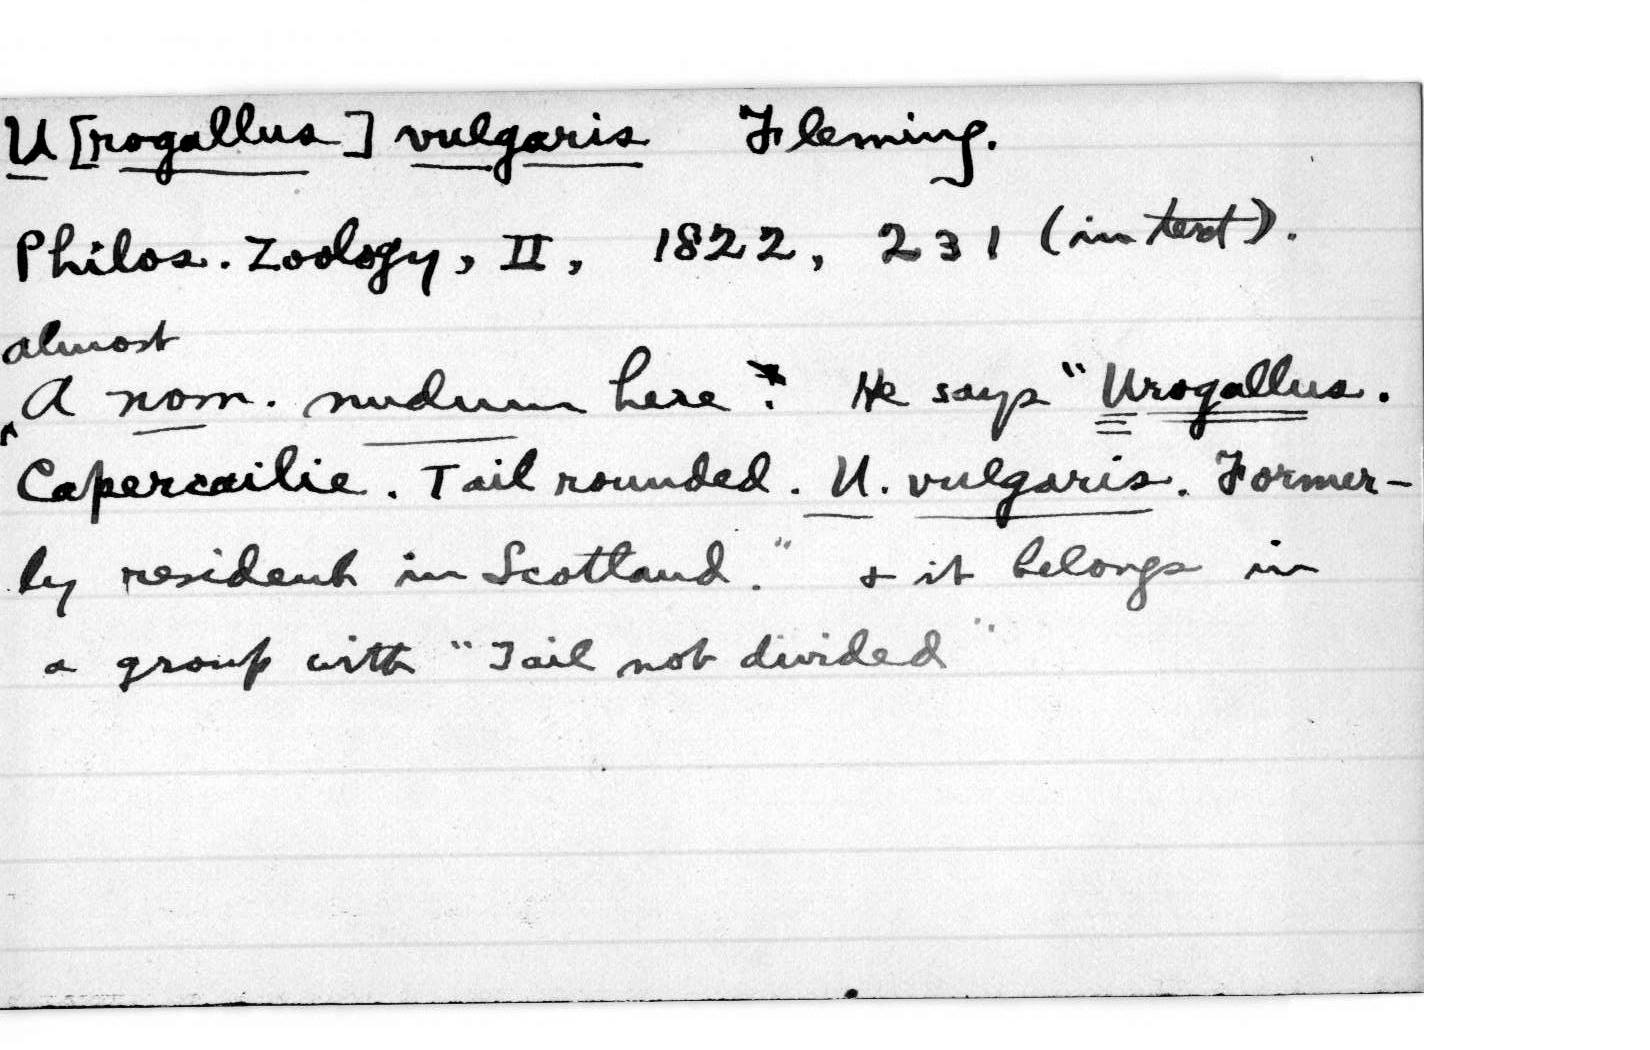 U[rogallus] vulgaris Fleming.
Philos. Zoology, II, 1822, 231 (in text).
almost
A nom. nudum here. He says "Urogallus.
Capercailie. Tail rounded. U. vulgaris. Former-
ly resident in Scotland." & it belongs in
a group with "Tail not divided"